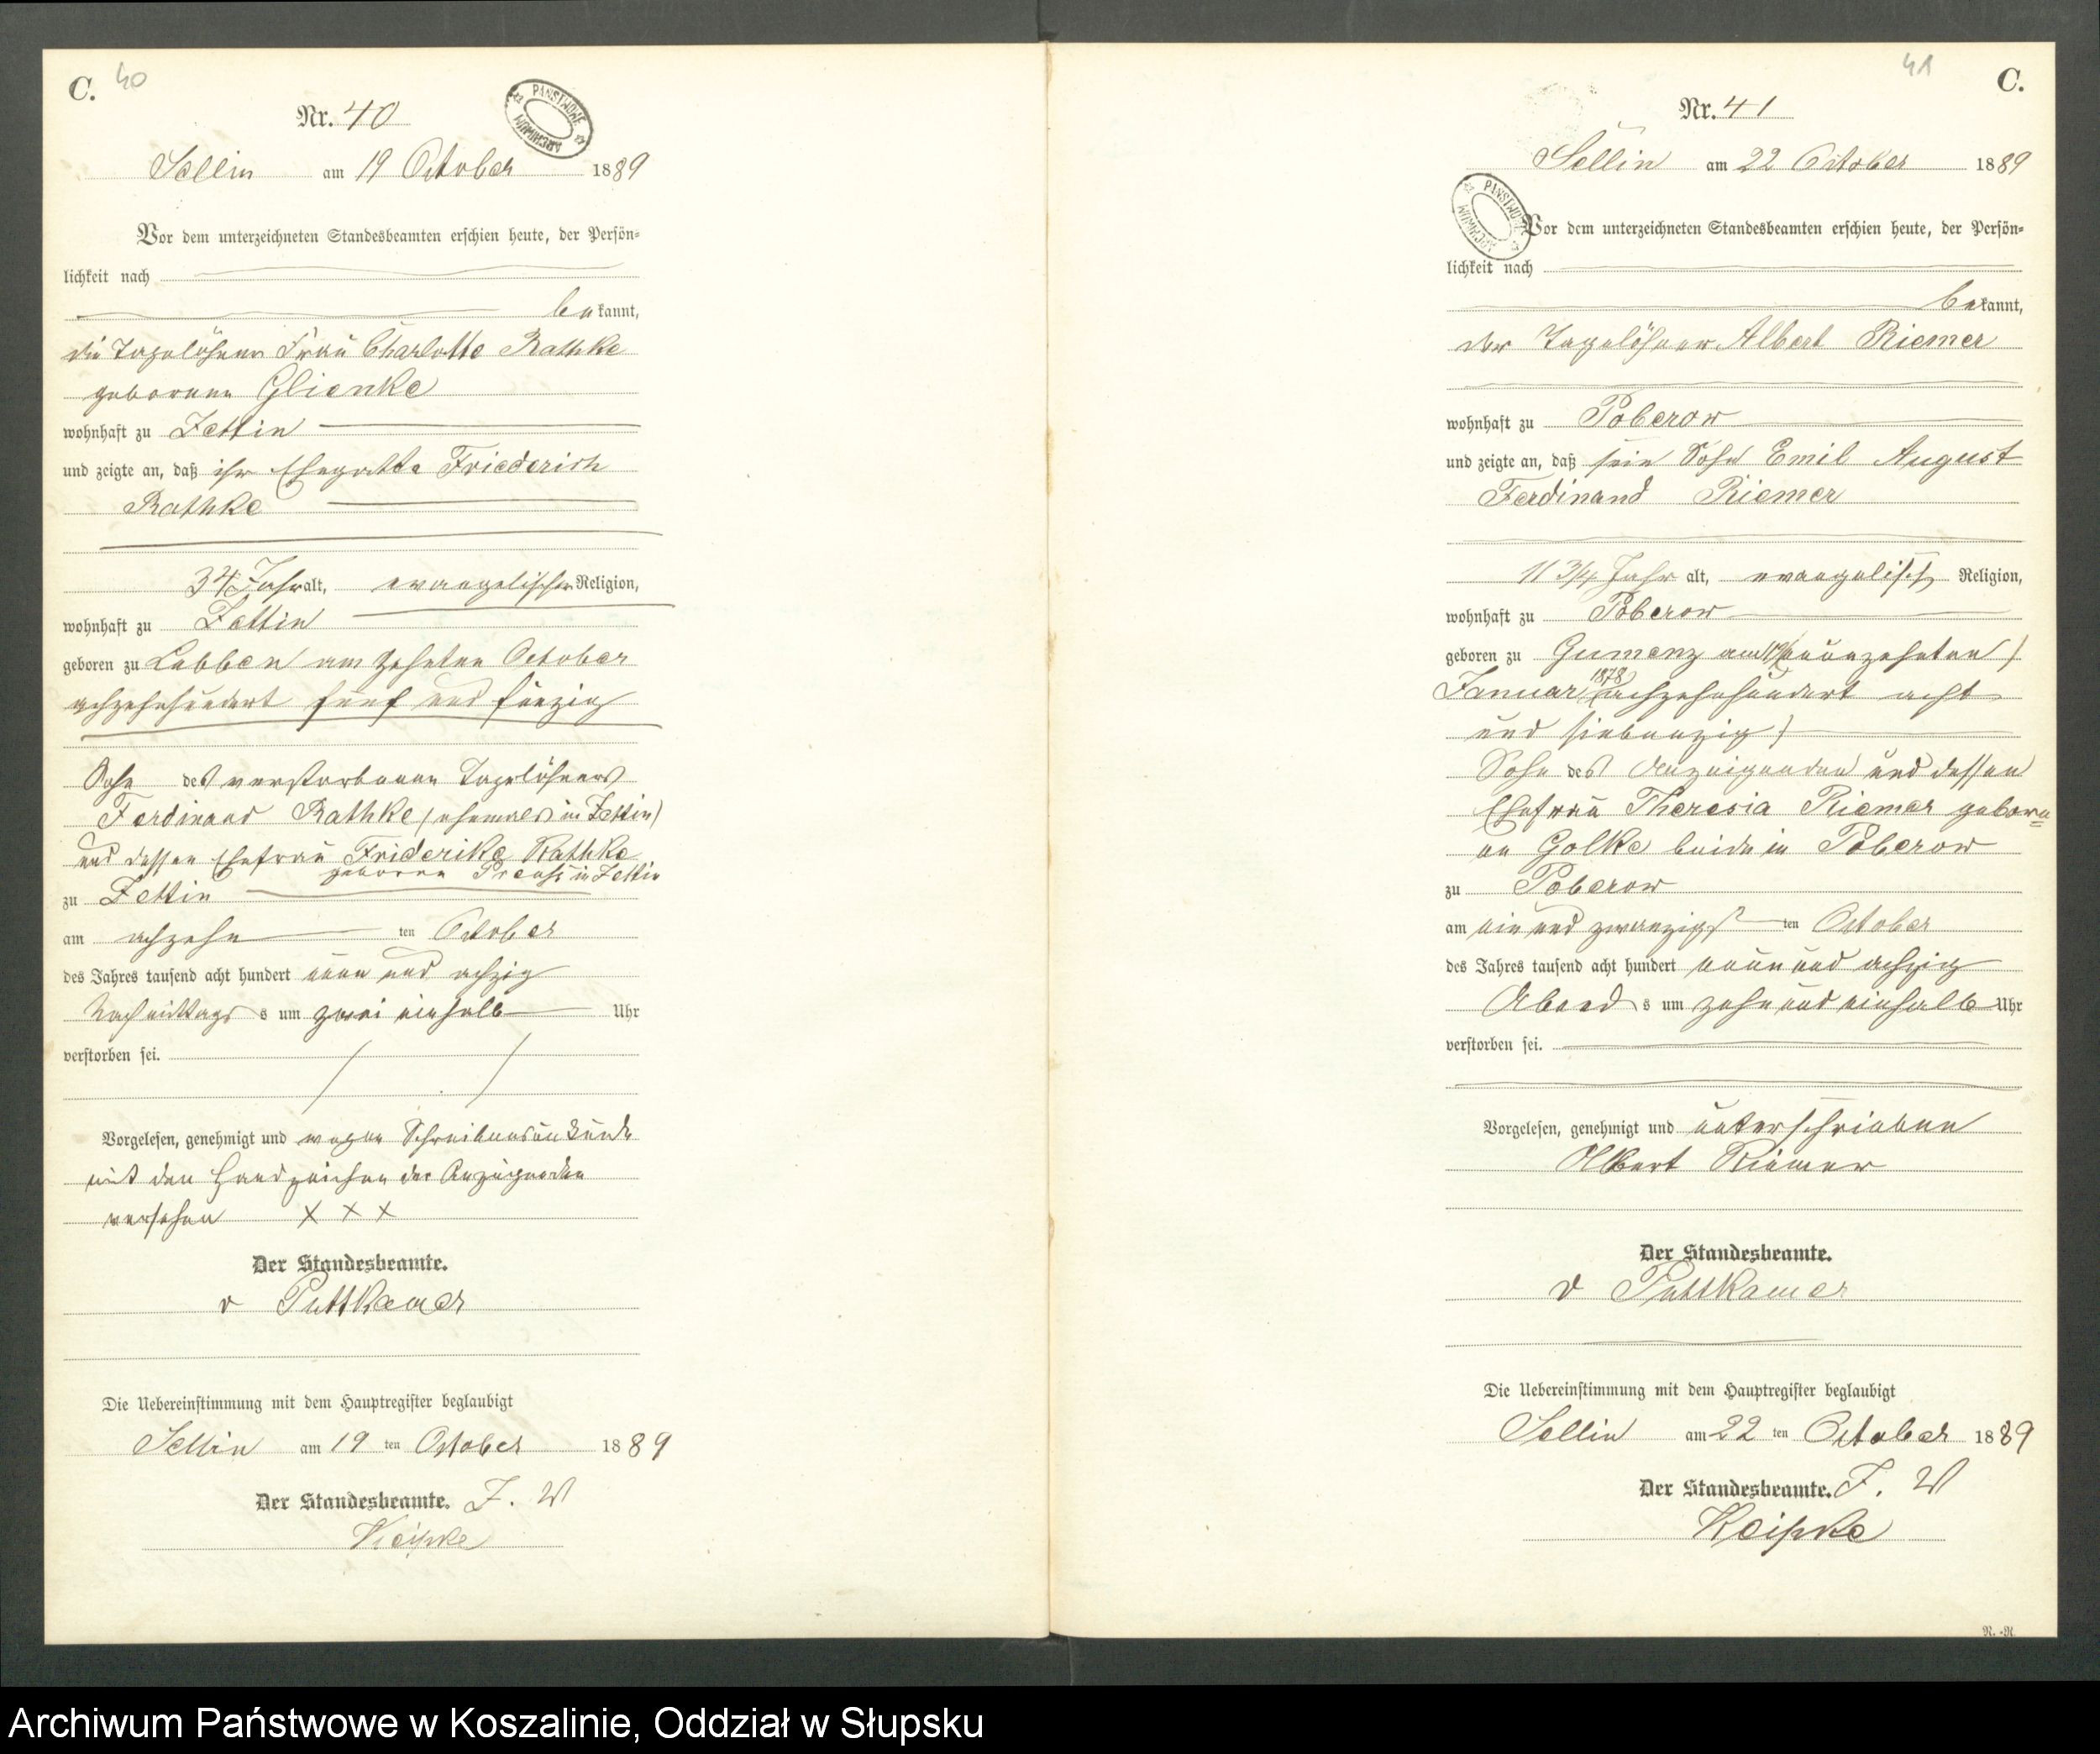 C. 40
Nr. 40
PAŃSTWOWE ARCHIWUM
Sellin am 19 October 1889
Vor dem unterzeichneten Standesbeamten erschien heute, der Persön-
lichkeit nach
bekannt,
die Tagelöhner Frau Charlotte Rathke
geborene Glienke
wohnhaft zu Zettin
und zeigte an, daß ihr Ehegatte Friederich
Rathke
34 Jahr alt, evangelischer Religion,
wohnhaft zu Zettin
geboren zu Labben am zehnten October
achzehnhundert fünf und fünzig
Sohn des verstorbenen Tagelöhners
Ferdinand Rathke (ehemals in Zettin)
und dessen Ehefrau Friderike Rathke
geborene Preuß in Zettin
zu Zettin
am achzehn ten October
des Jahres tausend acht hundert neun und achzig
Nachmittags s um zwei einhalb Uhr
verstorben sei.
Vorgelesen, genehmigt und wegen Schreibensunkunde
mit den Handzeichen der Anzeigenden
versehen X X X
Der Standesbeamte.
v Puttkamer
Die Uebereinstimmung mit dem Hauptregister beglaubigt
Sellin am 19 ten October 1889
Der Standesbeamte. I. V
Keipke
41 C.
Nr. 41
Sellin am 22 October 1889
PAŃSTWOWE ARCHIWUM
Vor dem unterzeichneten Standesbeamten erschien heute, der Persön-
lichkeit nach
bekannt,
der Tagelöhner Albert Riemer
wohnhaft zu Poberow
und zeigte an, daß sein Sohn Emil August
Ferdinand Riemer
11 3/4 Jahr alt, evangelisch Religion,
wohnhaft zu Poberow
geboren zu Gumenz am (neunzehnten)
Januar 1878 (achzehnhundert acht
und siebenzig)
Sohn des Anzeigenden und dessen
Ehefrau Theresia Riemer gebore=
ne Golke beide in Poberow
zu Poberow
am ein und zwanzigst ten October
des Jahres tausend acht hundert neun und achzig
Abend s um zehn und einhalb Uhr
verstorben sei.
Vorgelesen, genehmigt und unterschrieben
Albert Riemer
Der Standesbeamte.
v Puttkamer
Die Uebereinstimmung mit dem Hauptregister beglaubigt
Sellin am 22 ten October 1889
Der Standesbeamte. I. V
Keipke
R.-R.
Archiwum Państwowe w Koszalinie, Oddział w Słupsku